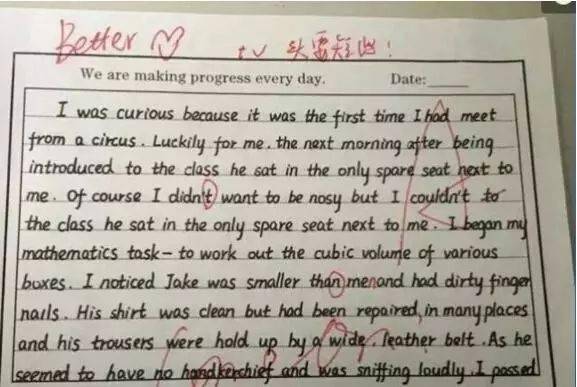 Better
t v 头要短出!
We are making progress every day. Date:
I was curious because it was the first time I had meet
from a circus. Luckily for me, the next morning after being
introduced to the class he sat in the only spare seat next to
me. Of course I didn't want to be nosy but I couldn't to
the class he sat in the only spare seat next to me. I began my
mathematics task- to work out the cubic volume of various
boxes. I noticed Jake was smaller than me and had dirty finger
nails. His shirt was clean but had been repaired, in many places
and his trousers were hold up by a wide, leather belt. As he
seemed to have no handkerchief and was sniffing loudly. I passed